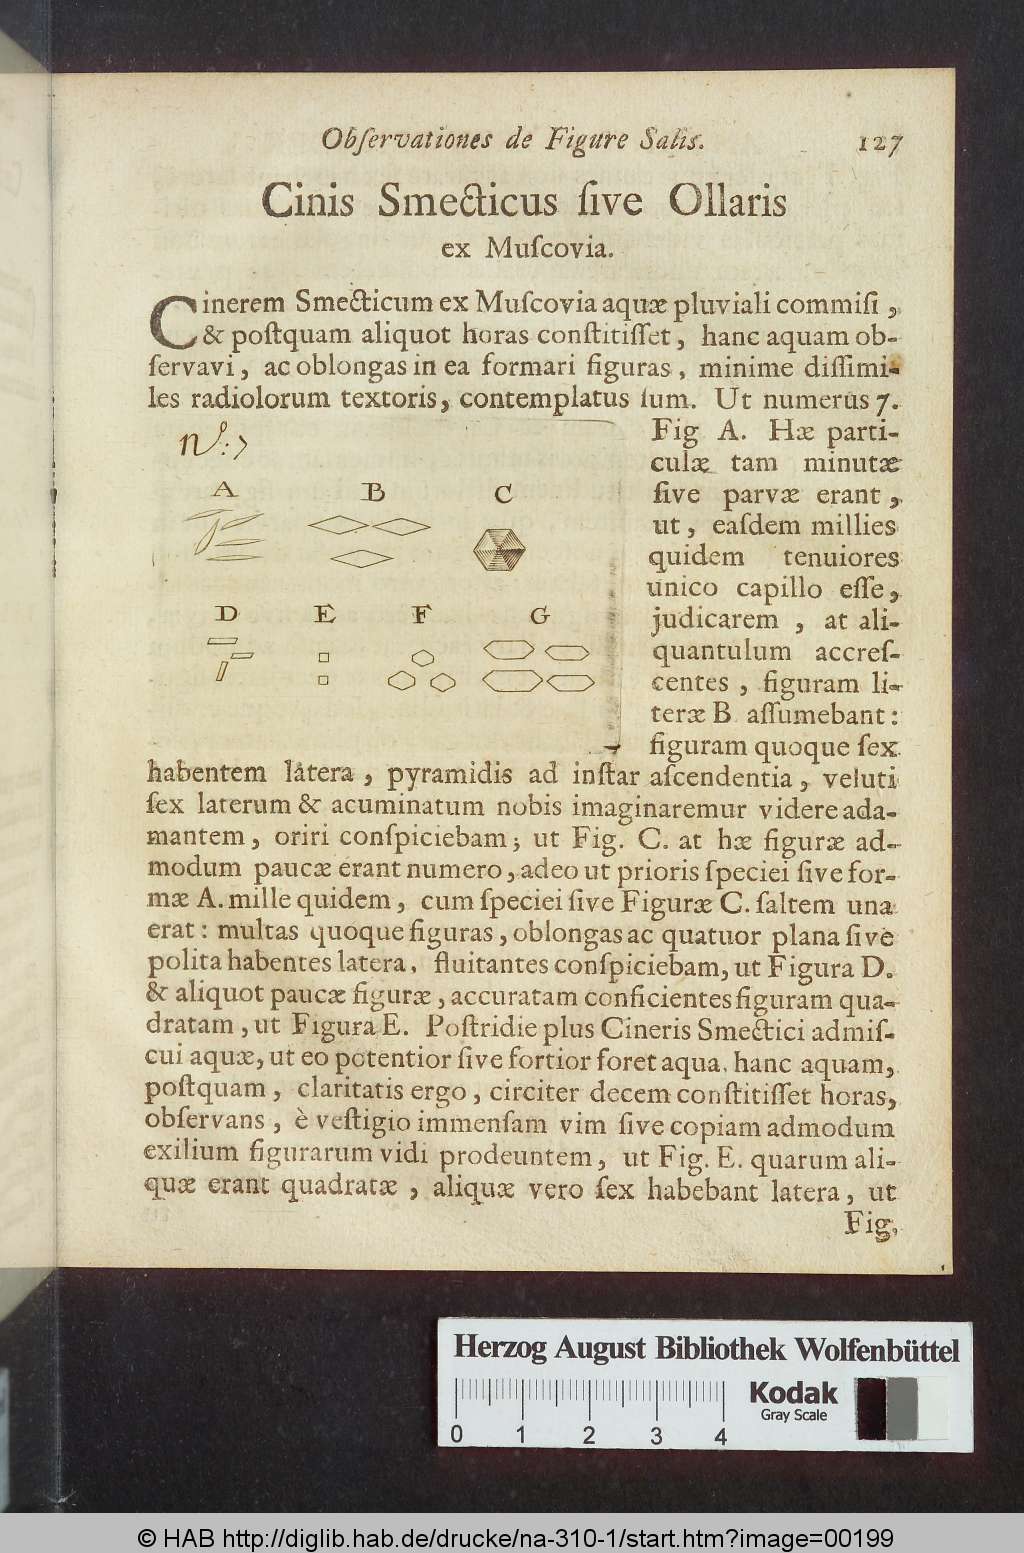 Obſervationes de Figure Salis. 127
Cinis Smecticus ſive Ollaris
ex Muſcovia.
Cinerem Smecticum ex Muſcovia aquæ pluviali commiſi,
& poſtquam aliquot horas conſtitiſſet, hanc aquam ob-
ſervavi, ac oblongas in ea formari figuras, minime diſſimi-
les radiolorum textoris, contemplatus ſum. Ut numerus 7.
Fig A. Hæ parti-
culæ tam minutæ
ſive parvæ erant,
ut, eaſdem millies
quidem tenuiores
unico capillo eſſe,
judicarem, at ali-
quantulum accreſ-
centes, figuram li-
teræ B aſſumebant:
figuram quoque ſex
No: 7
A B C
D E F G
habentem latera, pyramidis ad inſtar aſcendentia, veluti
ſex laterum & acuminatum nobis imaginaremur videre ada-
mantem, oriri conſpiciebam; ut Fig. C. at hæ figuræ ad-
modum paucæ erant numero, adeo ut prioris ſpeciei ſive for-
mæ A. mille quidem, cum ſpeciei ſive Figuræ C. ſaltem una
erat: multas quoque figuras, oblongas ac quatuor plana ſive
polita habentes latera, fluitantes conſpiciebam, ut Figura D.
& aliquot paucæ figuræ, accuratam conficientes figuram qua-
dratam, ut Figura E. Poſtridie plus Cineris Smectici admiſ-
cui aquæ, ut eo potentior ſive fortior foret aqua, hanc aquam,
poſtquam, claritatis ergo, circiter decem conſtitiſſet horas,
obſervans, è veſtigio immenſam vim ſive copiam admodum
exilium figurarum vidi prodeuntem, ut Fig. E. quarum ali-
quæ erant quadratæ, aliquæ vero ſex habebant latera, ut
Fig.
Herzog August Bibliothek Wolfenbüttel
Kodak
Gray Scale
0 1 2 3 4
© HAB http://diglib.hab.de/drucke/na-310-1/start.htm?image=00199